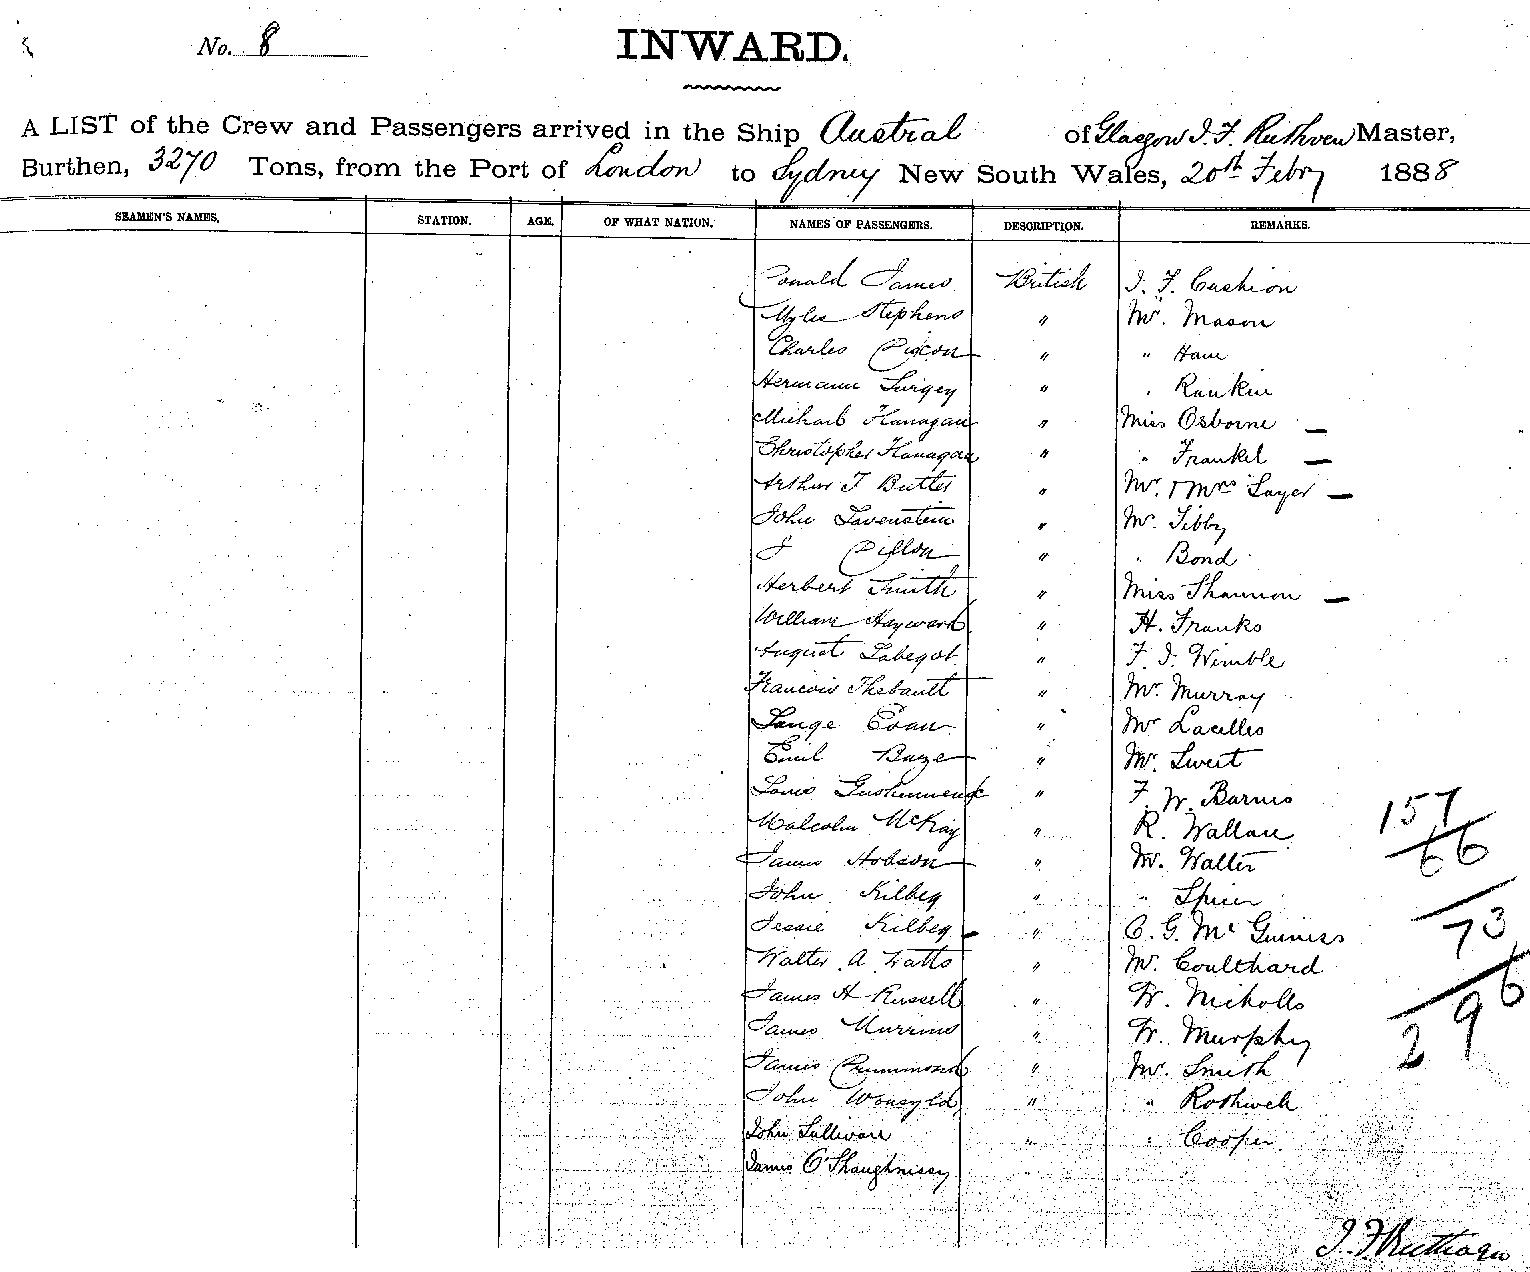 No. 8
INWARD.
A LIST of the Crew and Passengers arrived in the Ship Austral of Glasgow J. F. Ruthven Master,
Burthen, 3270 Tons, from the Port of London to Sydney New South Wales, 20th Febry 1888
SEAMEN'S NAMES. STATION. AGE. OF WHAT NATION. NAMES OF PASSENGERS. DESCRIPTION. REMARKS.
Donald James British J. F. Cashion
Myles Stephens " Mr. Mason
Charles " " Ham
Hermann " " Rankin
Michael Flanagan " Miss Osborne —
Christopher Flanagan " " Frankel —
Arthur T Butler " Mr. & Mrs Sayer —
John Lavenstein " Mr. Tibby
J Dillon " " Bond
Herbert Smith " Miss Shannon —
William Hayward " H. Franks
August " F. J. Wimble
Francois Thebault " Mr. Murray
Evan " Mr Lacelles
Emil " Mr. Swest
Louis " F. W. Barnes 157
Malcolm McKay " R. Wallace
James Hobson " Mr. Walter 66
John Kilbey " " Spicer
Jessie Kilbey — " C. G. Mc Guiness 73
Walter A Watts " Mr. Coulthard
James H Russell " W. Nicholls 6
James " W. Murphy 29
James Drummond " Mr. Smith
John " " Rothwell
John Sullivan " " Cooper
James O'Shaughnissy
J. F. Ruthven